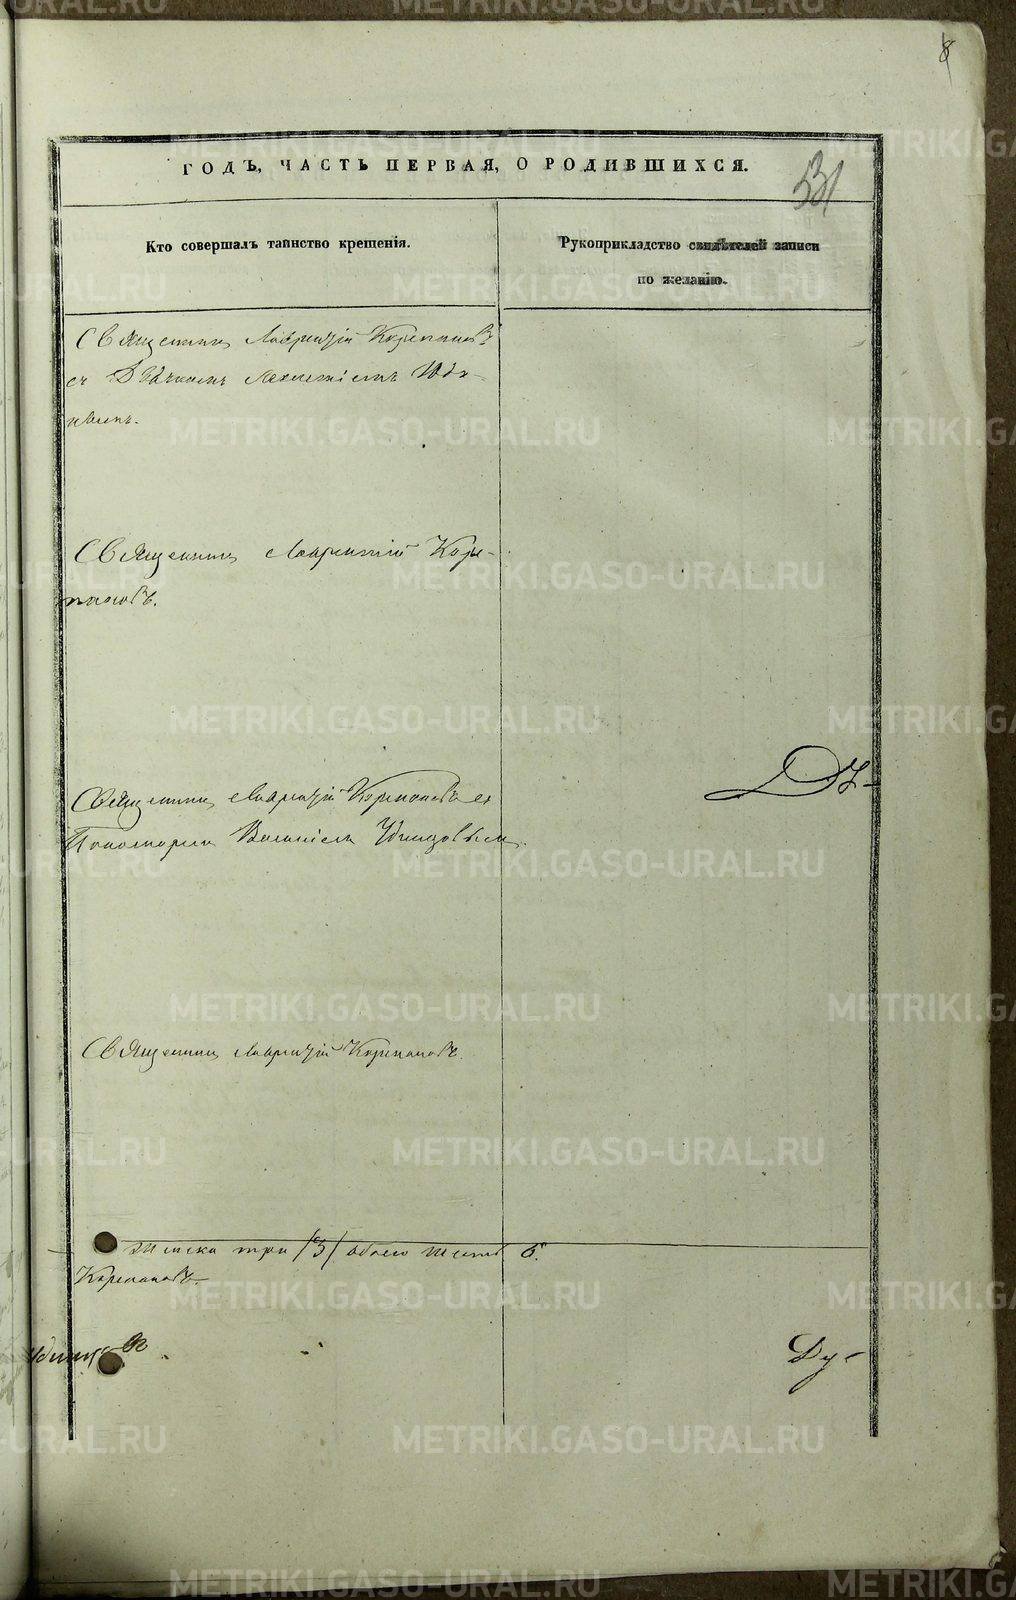 8
ГОДЪ, ЧАСТЬ ПЕРВАЯ, О РОДИВШИХСЯ.
531
Кто совершалъ таинство крещенія.
Рукоприкладство свидѣтелей записи
по желанію.
Священникъ Лаврентій Корепановъ
съ Дьячкомъ
Священникъ Лаврентій Коре-
пановъ.
Священникъ Лаврентій Корепановъ съ
Пономаремъ Удинцовымъ.
Священникъ Лаврентій Корепановъ.
женска три /3/ обоего шесть 6.
Корепановъ.
Удинцовъ
Ду-
METRIKI.GASO-URAL.RU